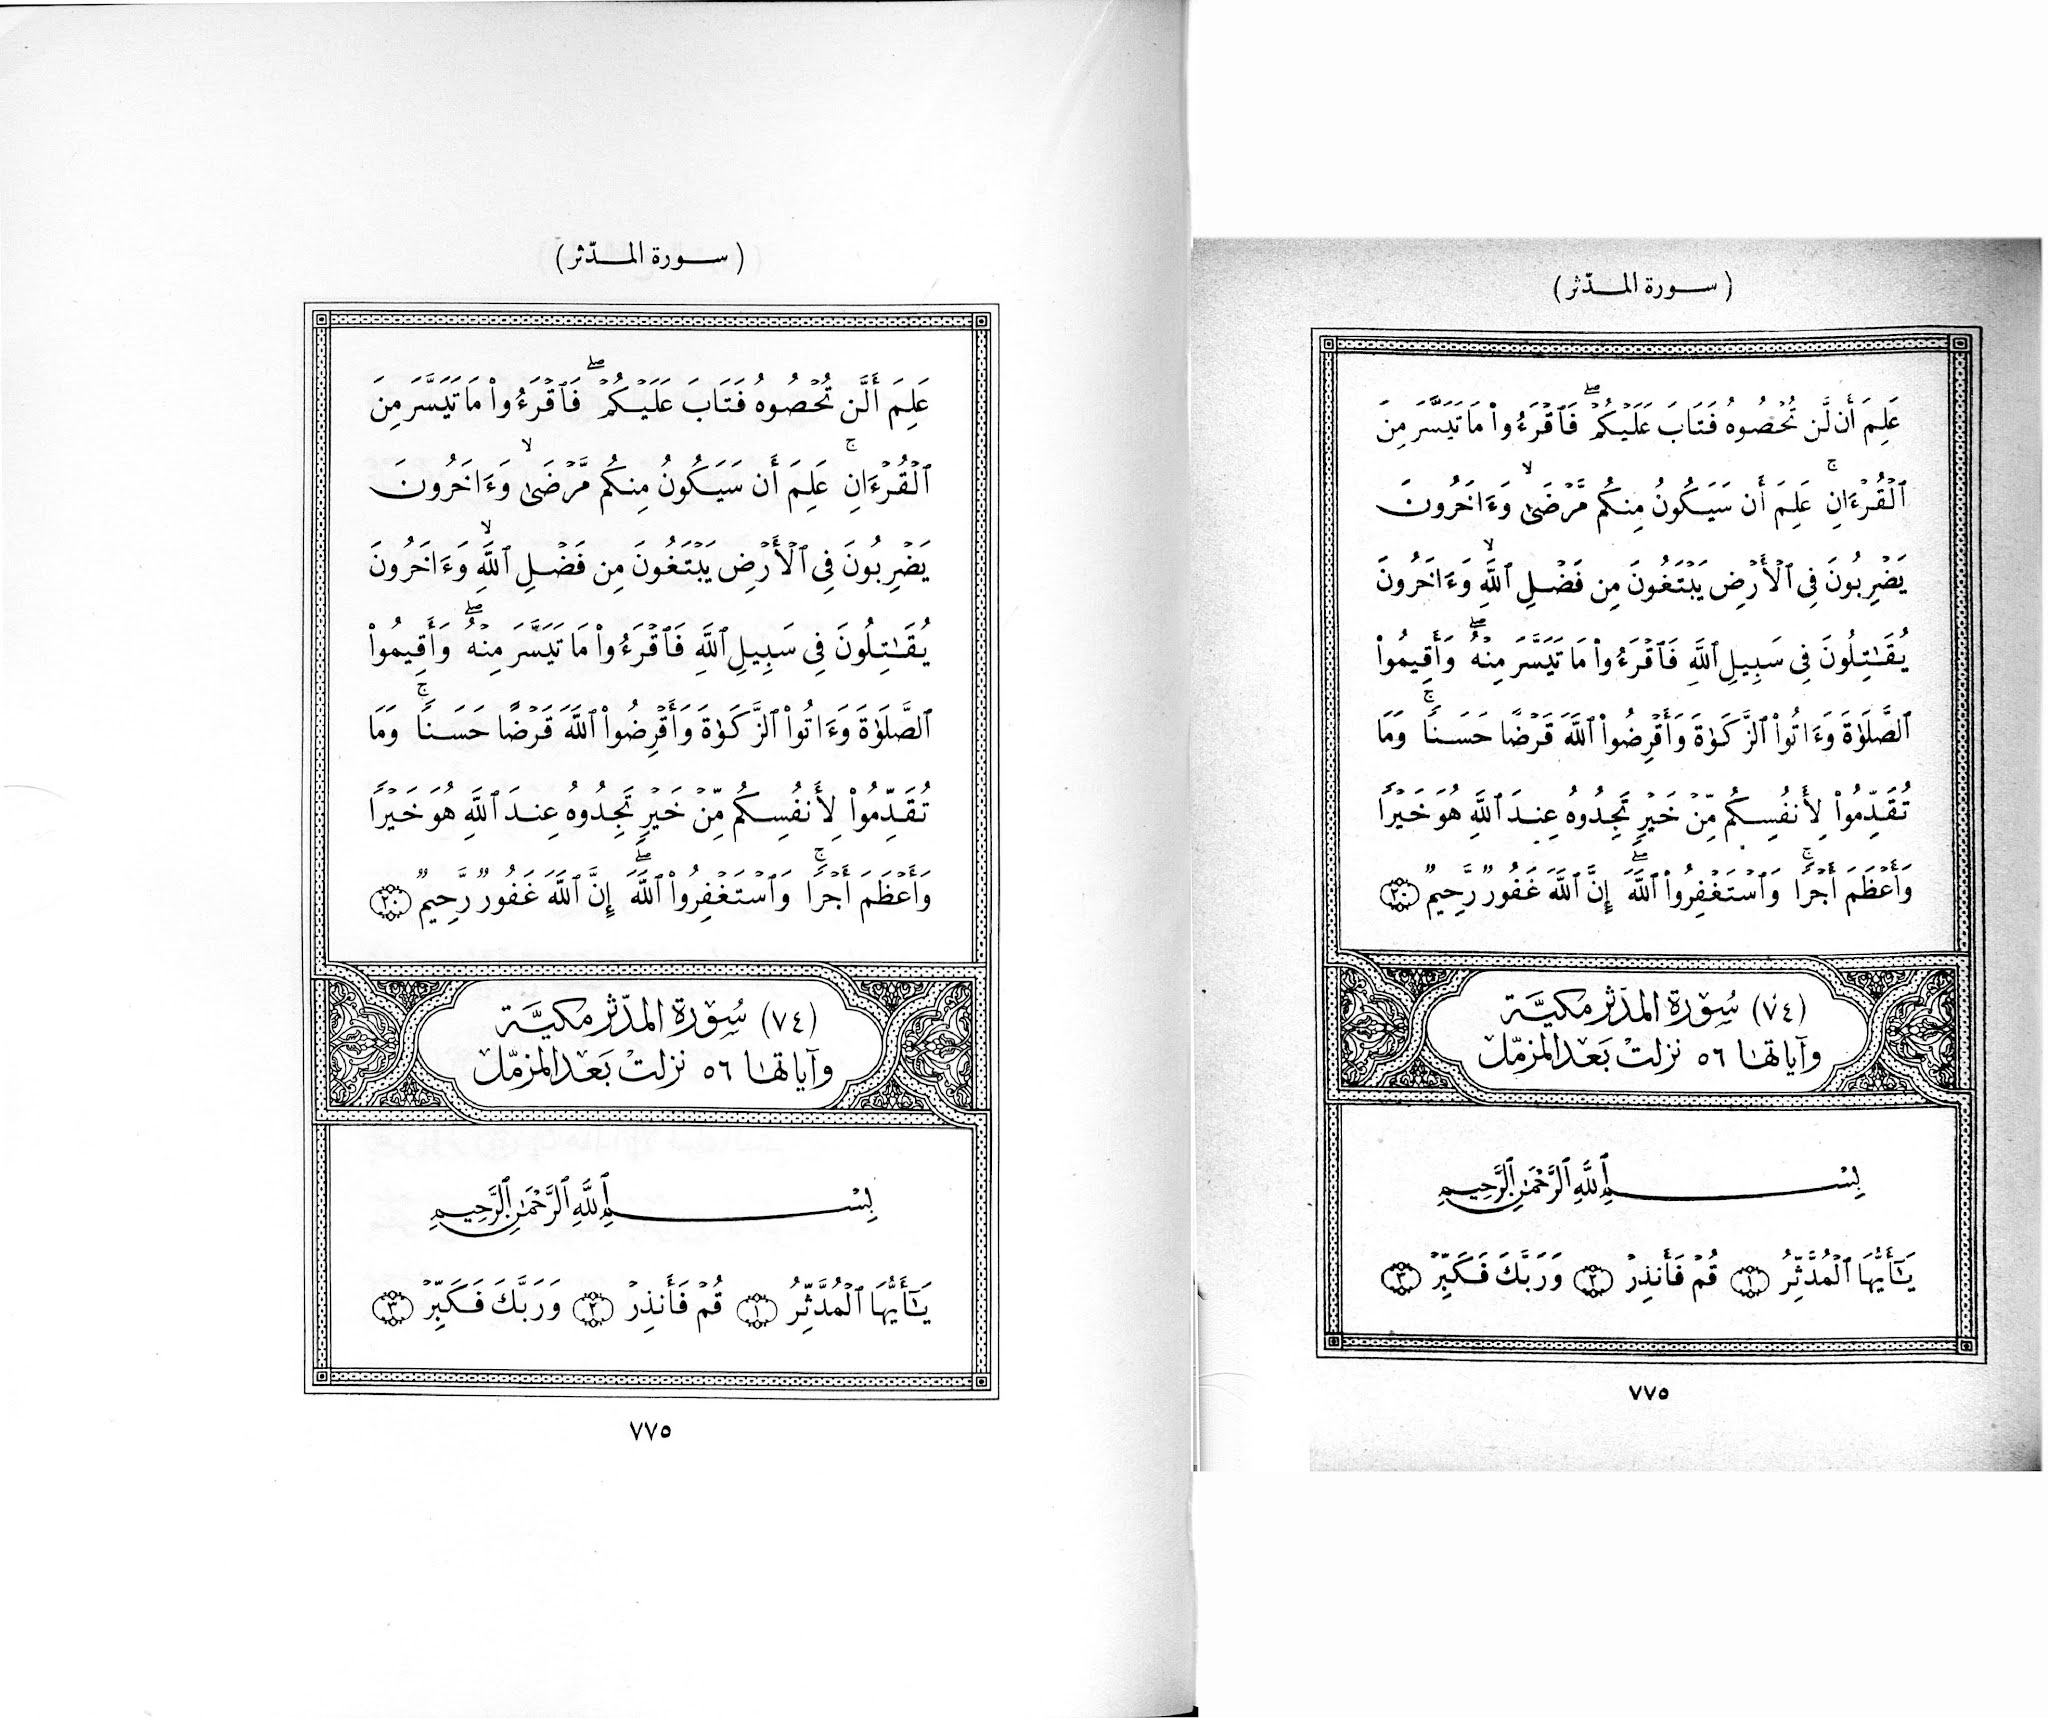 ( ســورة المــدّثر )
عَلِمَ أَلَّن تُحۡصُوهُ فَتَابَ عَلَيۡكُمۡۖ فَٱقۡرَءُواْ مَا تَيَسَّرَ مِنَ
ٱلۡقُرۡءَانِۚ عَلِمَ أَن سَيَكُونُ مِنكُم مَّرۡضَىٰۙ وَءَاخَرُونَ
يَضۡرِبُونَ فِى ٱلۡأَرۡضِ يَبۡتَغُونَ مِن فَضۡلِ ٱللَّهِۙ وَءَاخَرُونَ
يُقَـٰتِلُونَ فِى سَبِيلِ ٱللَّهِ فَٱقۡرَءُواْ مَا تَيَسَّرَ مِنۡهُۖ وَأَقِيمُواْ
ٱلصَّلَوٰةَ وَءَاتُواْ ٱلزَّكَوٰةَ وَأَقۡرِضُواْ ٱللَّهَ قَرۡضًا حَسَنًاۚ وَمَا
تُقَدِّمُواْ لِأَنفُسِكُم مِّنۡ خَيۡرٍ تَجِدُوهُ عِندَ ٱللَّهِ هُوَ خَيۡرًا
وَأَعۡظَمَ أَجۡرًاۚ وَٱسۡتَغۡفِرُواْ ٱللَّهَۖ إِنَّ ٱللَّهَ غَفُورٌ رَّحِيمٌ ٢٠
(٧٤) سُوۡرة المدّثر مكيَّة
وآياتها ٥٦ نزلت بَعۡد المزمّل
بِسۡمِ ٱللَّهِ ٱلرَّحۡمَـٰنِ ٱلرَّحِيمِ
يَـٰٓأَيُّهَا ٱلۡمُدَّثِّرُ ١ قُمۡ فَأَنذِرۡ ٢ وَرَبَّكَ فَكَبِّرۡ ٣
٧٧٥
( ســورة المــدّثر )
عَلِمَ أَن لَّن تُحۡصُوهُ فَتَابَ عَلَيۡكُمۡۖ فَٱقۡرَءُواْ مَا تَيَسَّرَ مِنَ
ٱلۡقُرۡءَانِۚ عَلِمَ أَن سَيَكُونُ مِنكُم مَّرۡضَىٰۙ وَءَاخَرُونَ
يَضۡرِبُونَ فِى ٱلۡأَرۡضِ يَبۡتَغُونَ مِن فَضۡلِ ٱللَّهِۙ وَءَاخَرُونَ
يُقَـٰتِلُونَ فِى سَبِيلِ ٱللَّهِ فَٱقۡرَءُواْ مَا تَيَسَّرَ مِنۡهُۖ وَأَقِيمُواْ
ٱلصَّلَوٰةَ وَءَاتُواْ ٱلزَّكَوٰةَ وَأَقۡرِضُواْ ٱللَّهَ قَرۡضًا حَسَنًاۚ وَمَا
تُقَدِّمُواْ لِأَنفُسِكُم مِّنۡ خَيۡرٍ تَجِدُوهُ عِندَ ٱللَّهِ هُوَ خَيۡرًا
وَأَعۡظَمَ أَجۡرًاۚ وَٱسۡتَغۡفِرُواْ ٱللَّهَۖ إِنَّ ٱللَّهَ غَفُورٌ رَّحِيمٌ ٢٠
(٧٤) سُوۡرة المدّثر مكيَّة
وآياتها ٥٦ نزلت بَعۡد المزمّل
بِسۡمِ ٱللَّهِ ٱلرَّحۡمَـٰنِ ٱلرَّحِيمِ
يَـٰٓأَيُّهَا ٱلۡمُدَّثِّرُ ١ قُمۡ فَأَنذِرۡ ٢ وَرَبَّكَ فَكَبِّرۡ ٣
٧٧٥